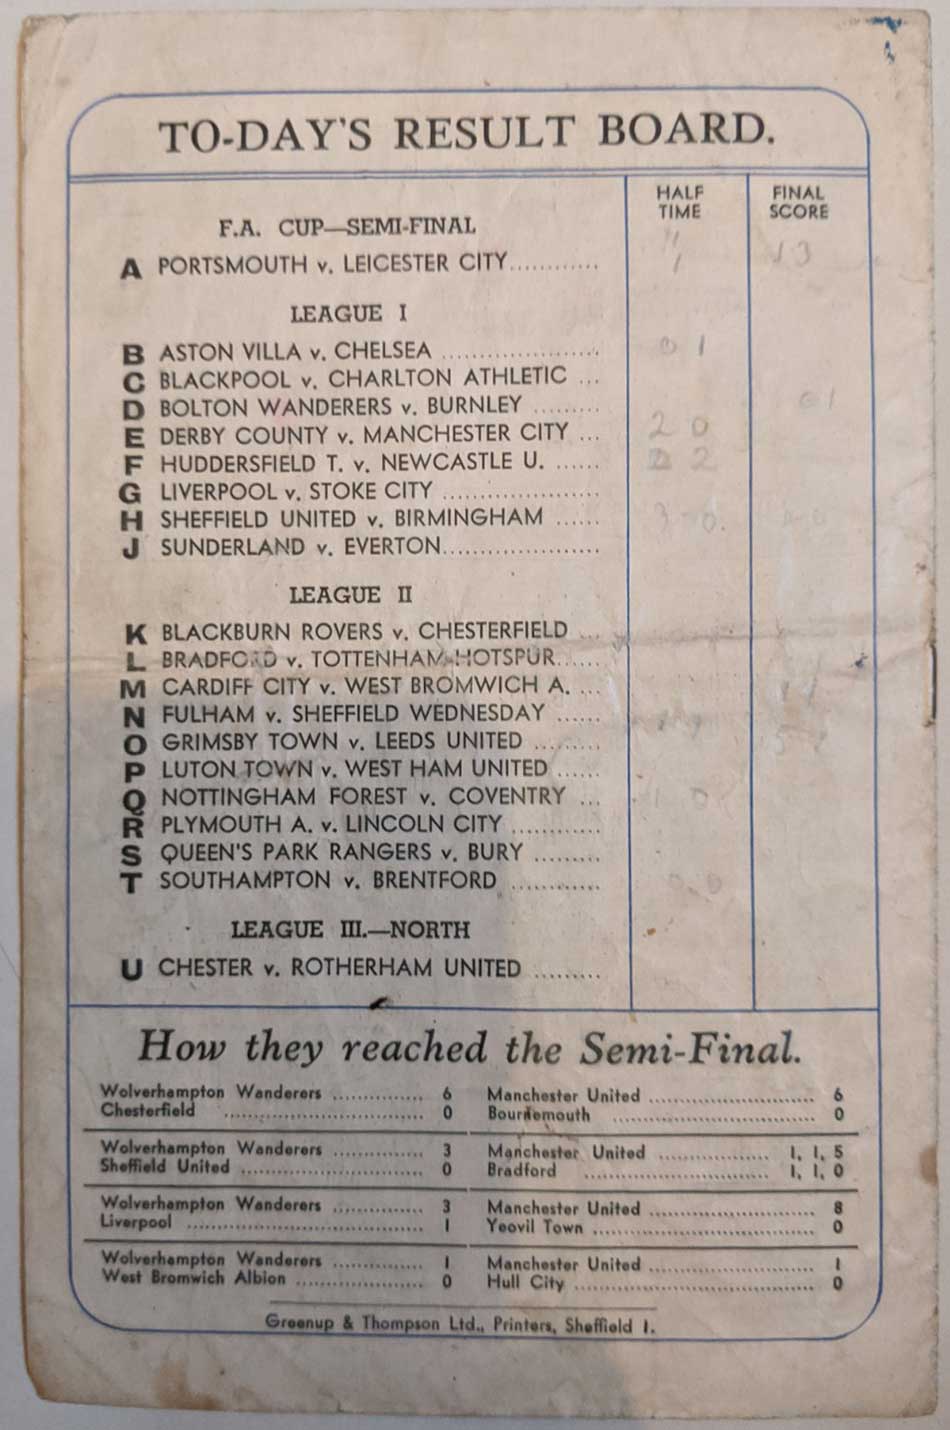 TO-DAY'S RESULT BOARD.
HALF TIME
FINAL SCORE
F.A. CUP—SEMI-FINAL
A PORTSMOUTH v. LEICESTER CITY............ 1 1 1 3
LEAGUE I
B ASTON VILLA v. CHELSEA ..................... 0 1
C BLACKPOOL v. CHARLTON ATHLETIC ...
D BOLTON WANDERERS v. BURNLEY ......... 0 1
E DERBY COUNTY v. MANCHESTER CITY ... 2 0
F HUDDERSFIELD T. v. NEWCASTLE U. ...... 2
G LIVERPOOL v. STOKE CITY .....................
H SHEFFIELD UNITED v. BIRMINGHAM ...... 3-0.
J SUNDERLAND v. EVERTON.....................
LEAGUE II
K BLACKBURN ROVERS v. CHESTERFIELD ...
L BRADFORD v. TOTTENHAM HOTSPUR......
M CARDIFF CITY v. WEST BROMWICH A. ...
N FULHAM v. SHEFFIELD WEDNESDAY ......
O GRIMSBY TOWN v. LEEDS UNITED .........
P LUTON TOWN v. WEST HAM UNITED ......
Q NOTTINGHAM FOREST v. COVENTRY ... 1 0
R PLYMOUTH A. v. LINCOLN CITY ............
S QUEEN'S PARK RANGERS v. BURY .........
T SOUTHAMPTON v. BRENTFORD ............ 0.0
LEAGUE III.—NORTH
U CHESTER v. ROTHERHAM UNITED .........
How they reached the Semi-Final.
Wolverhampton Wanderers .............. 6
Chesterfield .............................. 0
Manchester United ......................... 6
Bournemouth .............................. 0
Wolverhampton Wanderers .............. 3
Sheffield United ............................ 0
Manchester United ................. 1, 1, 5
Bradford ............................ 1, 1, 0
Wolverhampton Wanderers .............. 3
Liverpool .................................... 1
Manchester United ......................... 8
Yeovil Town .................................. 0
Wolverhampton Wanderers .............. 1
West Bromwich Albion ................... 0
Manchester United ......................... 1
Hull City ...................................... 0
Greenup & Thompson Ltd., Printers, Sheffield 1.